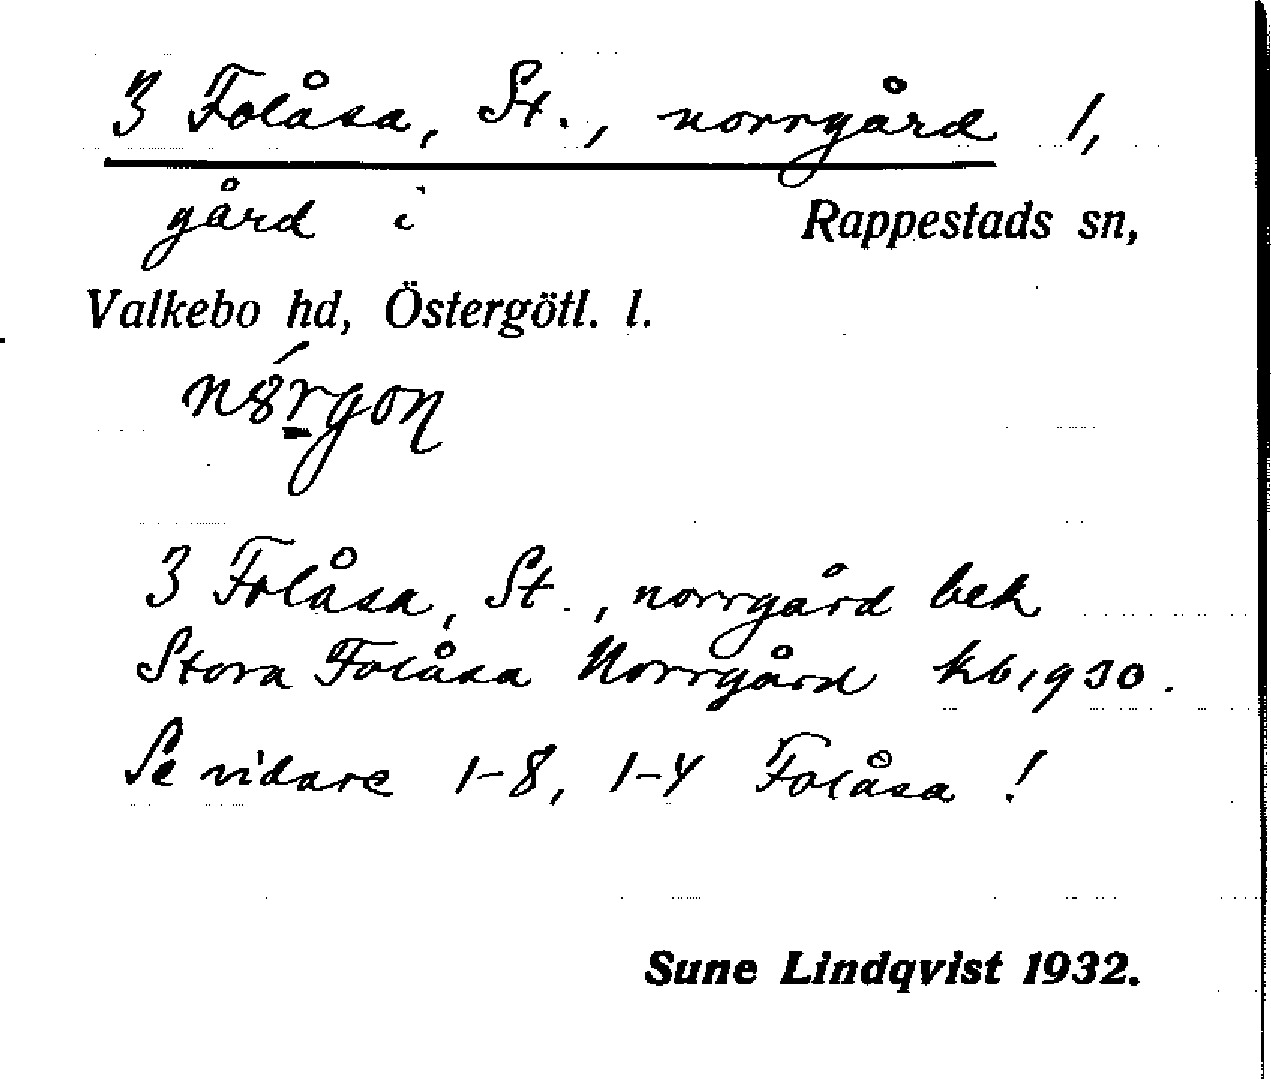 3 Folåsa, St., norrgård 1,
gård i Rappestads sn,
Valkebo hd, Östergötl. l.
3 Folåsa, St., norrgård bek
Stora Folåsa Norrgård kb 1930.
Se vidare 1-8, 1-4 Folåsa!
Sune Lindqvist 1932.